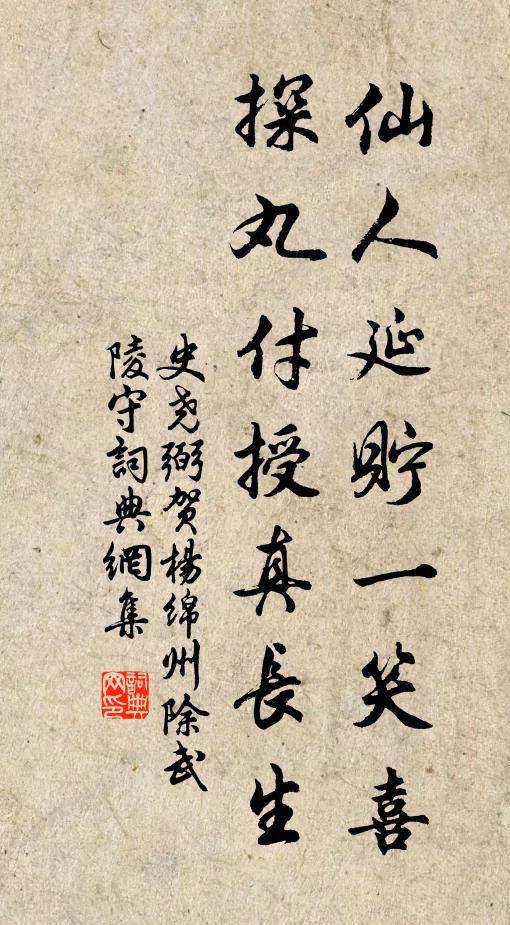 仙人延貯一笑喜
探丸付授真長生
史尧弼贺楊绵州除武
陵守詞典網集
詞典網印